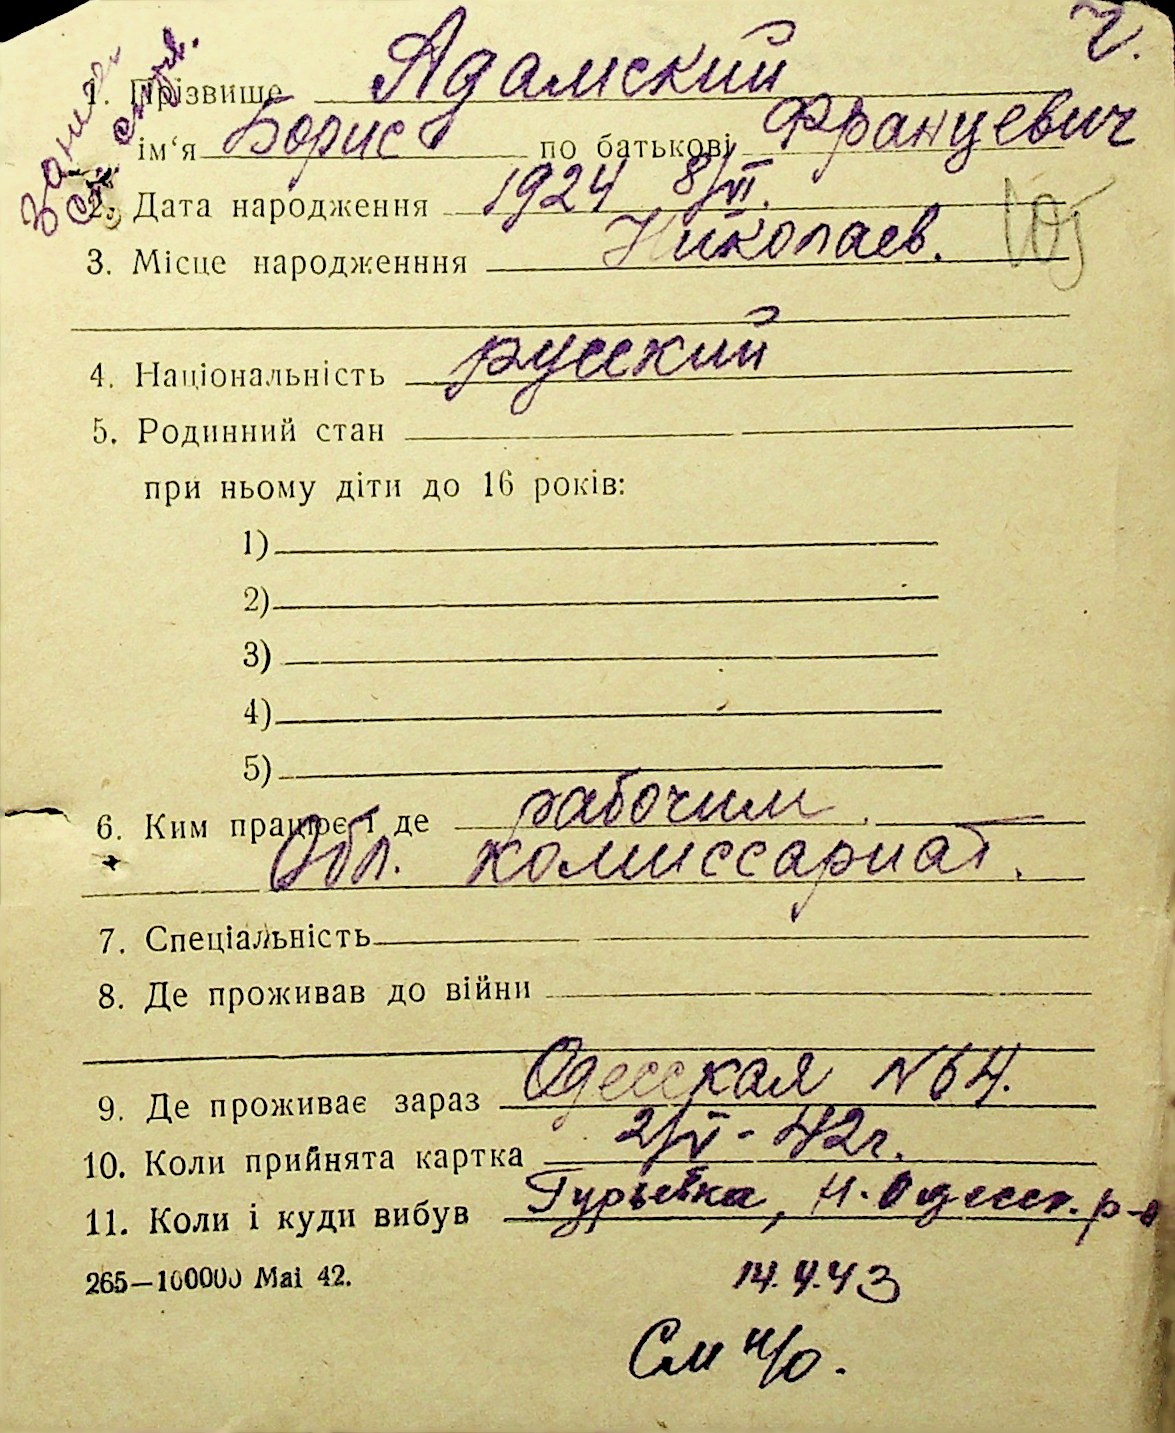 Ч.
1. Прізвище Адамский
ім‘я Борис по батькові Францевич
2. Дата народження 1924 8/VI.
3. Місце народженння Николаев.
4. Національність русский
5. Родинний стан
при ньому діти до 16 років:
1)
2)
3)
4)
5)
6. Ким працює і де рабочим
Обл. комиссариат.
7. Спеціальність
8. Де проживав до війни
9. Де проживає зараз Одесская №64.
10. Коли прийнята картка 2/V - 42г.
11. Коли і куди вибув Гурьевка, Н. Одесск. р-н
265—100000 Mai 42.
14.4.43
См н/о.